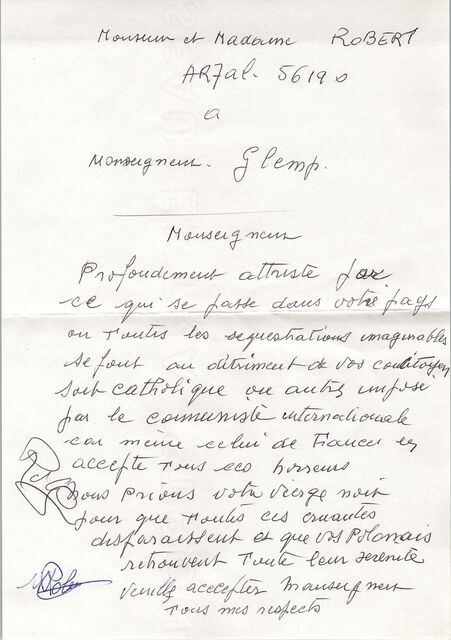 Monsieur et Madame ROBERT
ARZal. 56190
a
Monseigneur. Glemp.
Monseigneur
Profondement attristé par
ce qui se passe dans votre pays
ou toutes les sequestrations imaginables
se font au détriment de vos concitoyens
soit catholique ou autres imposé
par le communiste internationale
car meme celui de France
accepte tous ces horreurs
nous Prions votre vierge noir
pour que toutes ces cruautés
disparaissent et que vos Polonais
retrouvent toute leur serenité
veuille acccepter Monseigneur
tous mes respects